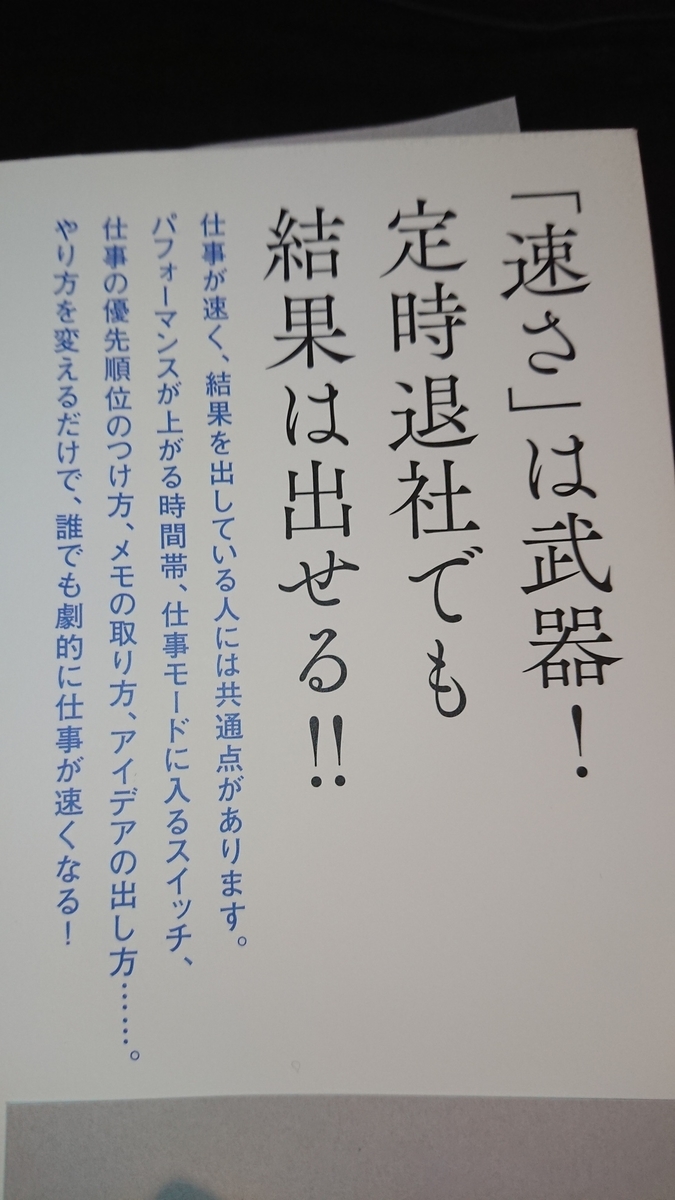 「速さ」は武器！
定時退社でも
結果は出せる!!
仕事が速く、結果を出している人には共通点があります。
パフォーマンスが上がる時間帯、仕事モードに入るスイッチ、
仕事の優先順位のつけ方、メモの取り方、アイデアの出し方……。
やり方を変えるだけで、誰でも劇的に仕事が速くなる！